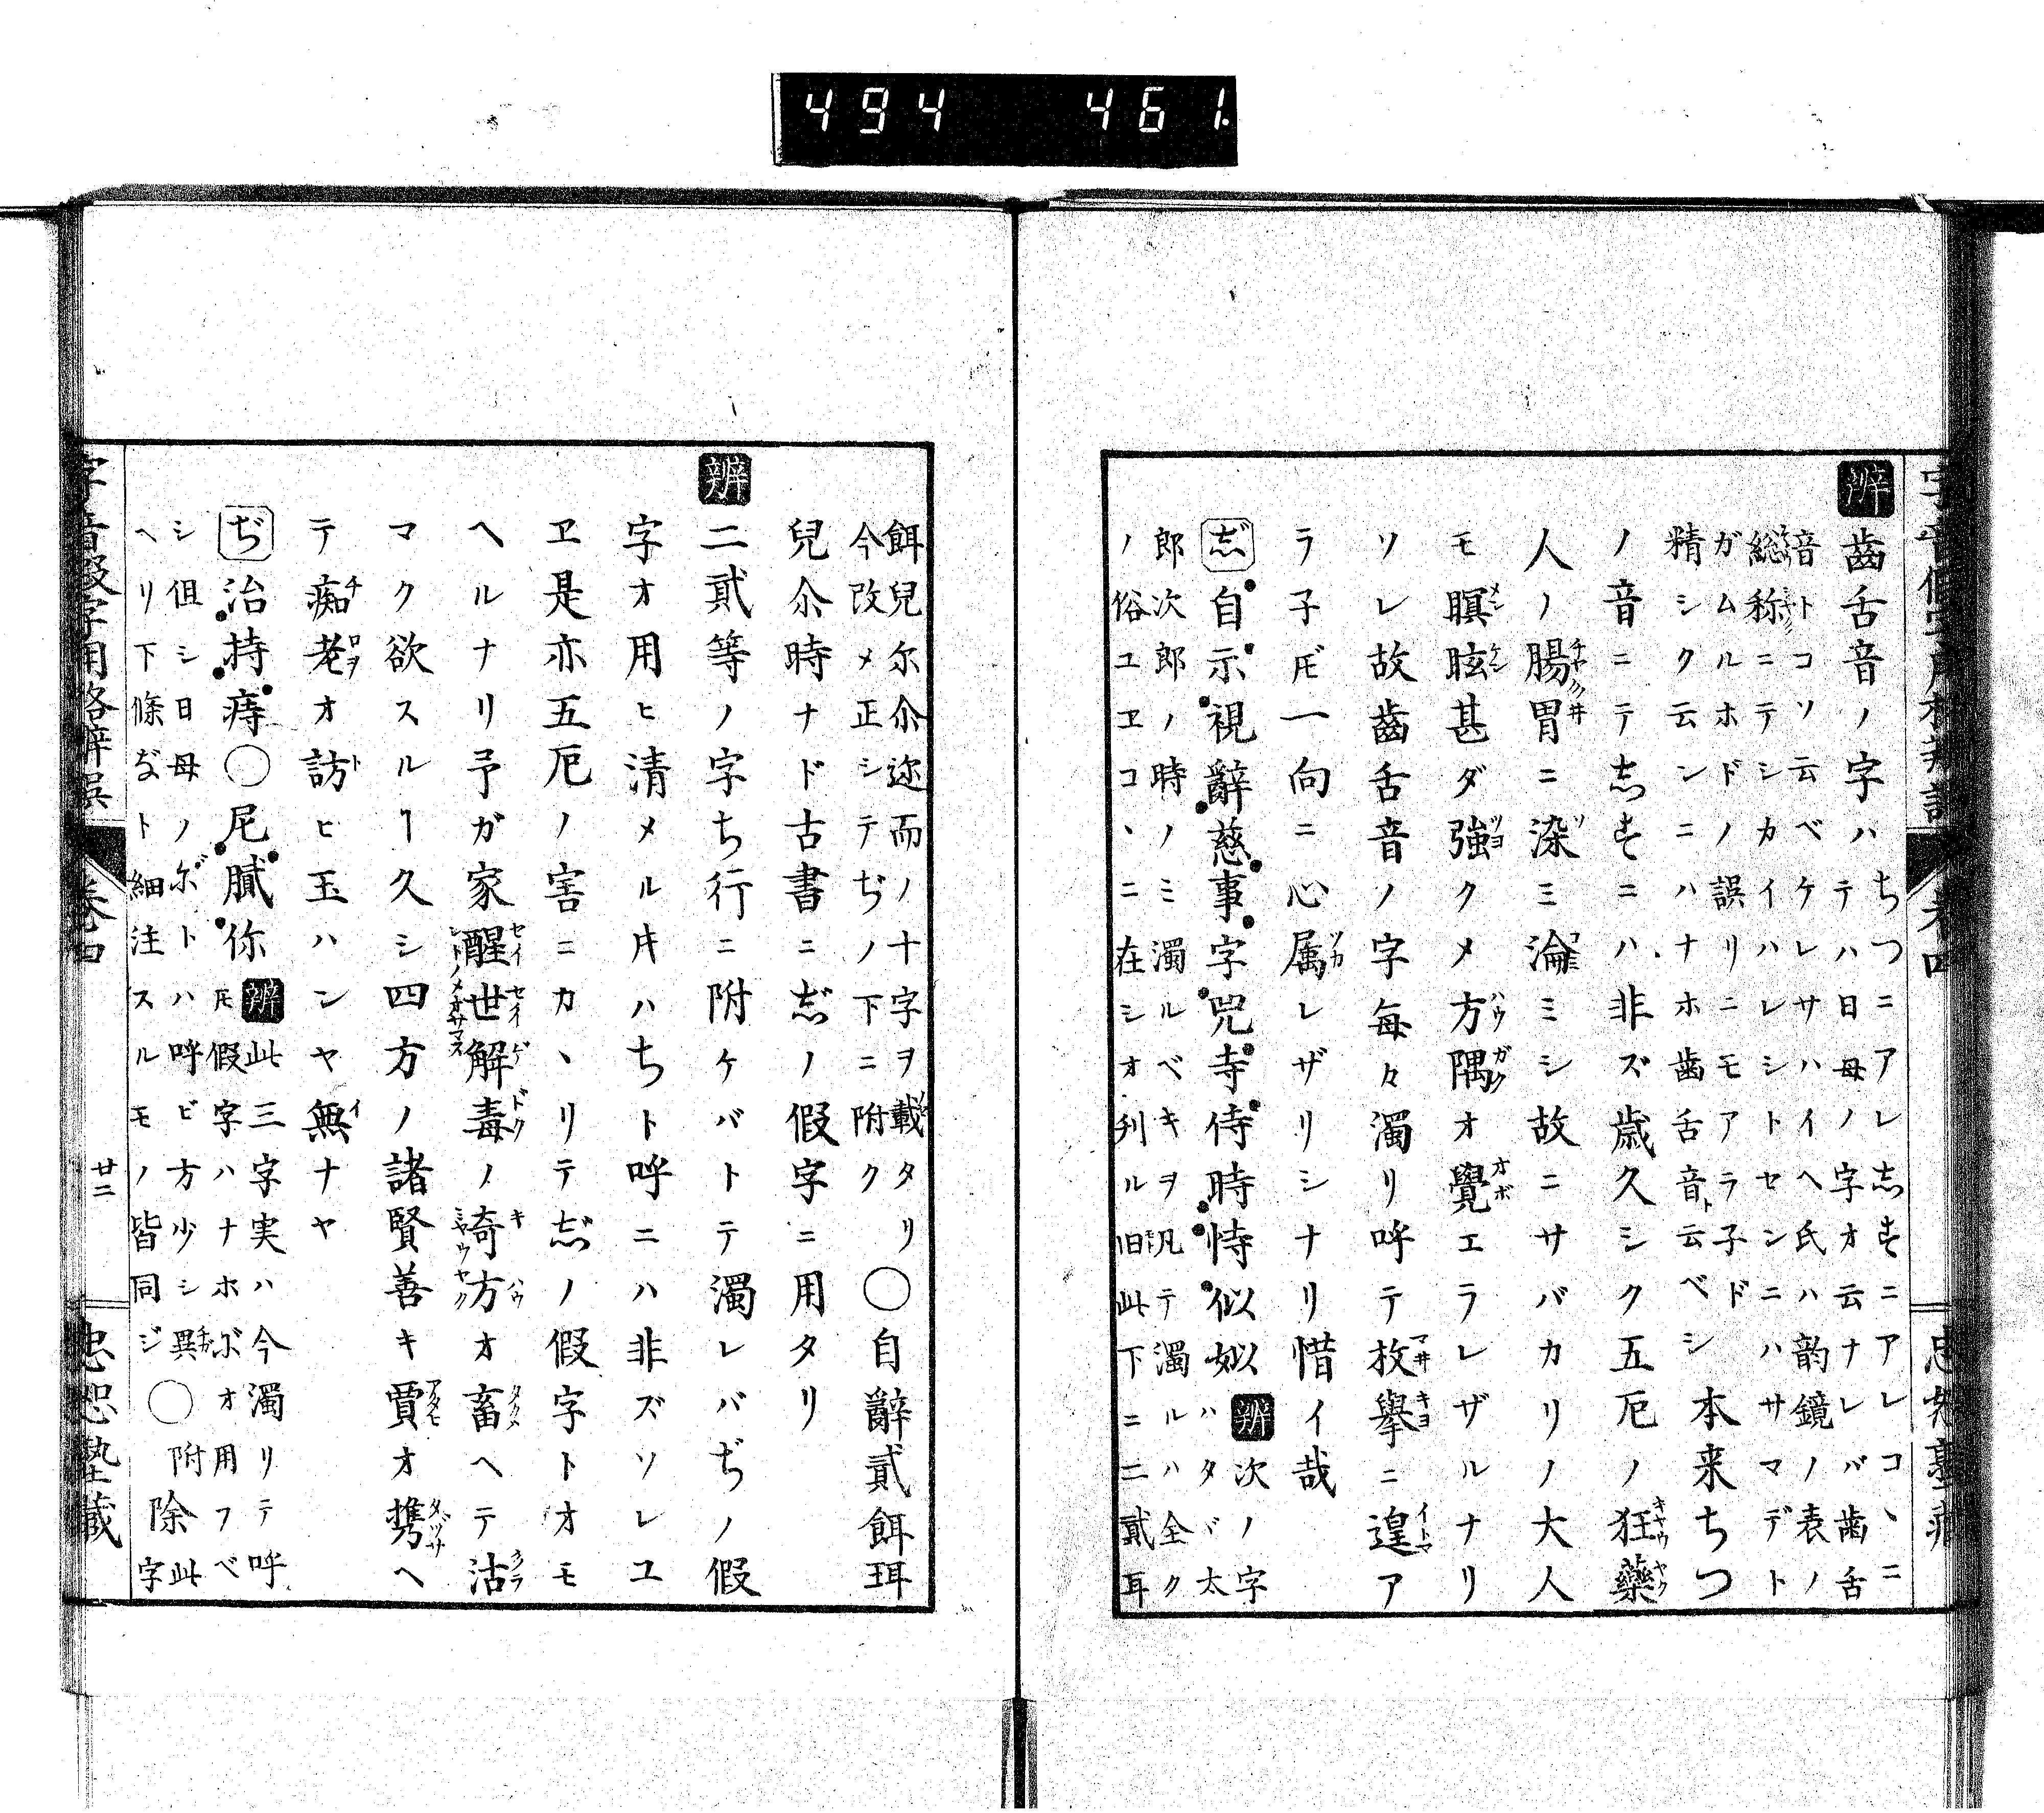 494 461.
辨 齒舌音ノ字ハちつニアレ志すニアレコヽニ
テハ日母ノ字オ云ナレバ歯舌
音トコソ云ベケレサハイヘ氏ハ韵鏡ノ表ノ
総称ニテシカイハレシトセンニハサマデト
ガムルホドノ誤リニモアラ子ド
精シク云ンニハナホ歯舌音ト云ベシ 本来ちつ
ノ音ニテ志すニハ非ズ歳久シク五厄ノ狂藥
人ノ腸胃ニ染ミ淪ミシ故ニサバカリノ大人
モ瞑眩甚ダ強クメ方隅オ覺エラレザルナリ
ソレ故齒舌音ノ字毎々濁リ呼テ枚擧ニ遑ア
ラ子𪜈一向ニ心属レザリシナリ惜イ哉
志゙ 自示視辭慈事字兕寺侍時恃似姒 辨 次ノ字
ハタバ太
郎次郎ノ時ノミ濁ルベキヲ凡テ濁ルハ全ク
ノ俗ユヱコヽニ在シオ刋ル旧此下ニ二貳耳
餌兒尓尒迩而ノ十字ヲ載タリ〇自辭貳餌珥
今改メ正シテぢノ下ニ附ク
兒尒時ナド古書ニ志゙ノ假字ニ用タリ
辨 二貳等ノ字ち行ニ附ケバトテ濁レバぢノ假
字オ用ヒ清メル㸿ハちト呼ニハ非ズソレユ
ヱ是亦五厄ノ害ニカヽリテ志゙ノ假字トオモ
ヘルナリ予ガ家醒世解毒ノ竒方オ畜ヘテ沽
マク欲スルヿ久シ四方ノ諸賢善キ賈オ携ヘ
テ痴老オ訪ヒ玉ハンヤ無ナヤ
ぢ 治持痔〇尼膩你 辨 此三字実ハ今濁リテ呼
𪜈假字ハナホぶオ用フベ
シ但シ日母ノぶトハ呼ビ方少シ異〇附除此
ヘリ下條ト細注スルモノ皆同ジ 字
字音假字用格辨誤 卷四 廿二 忠恕塾藏